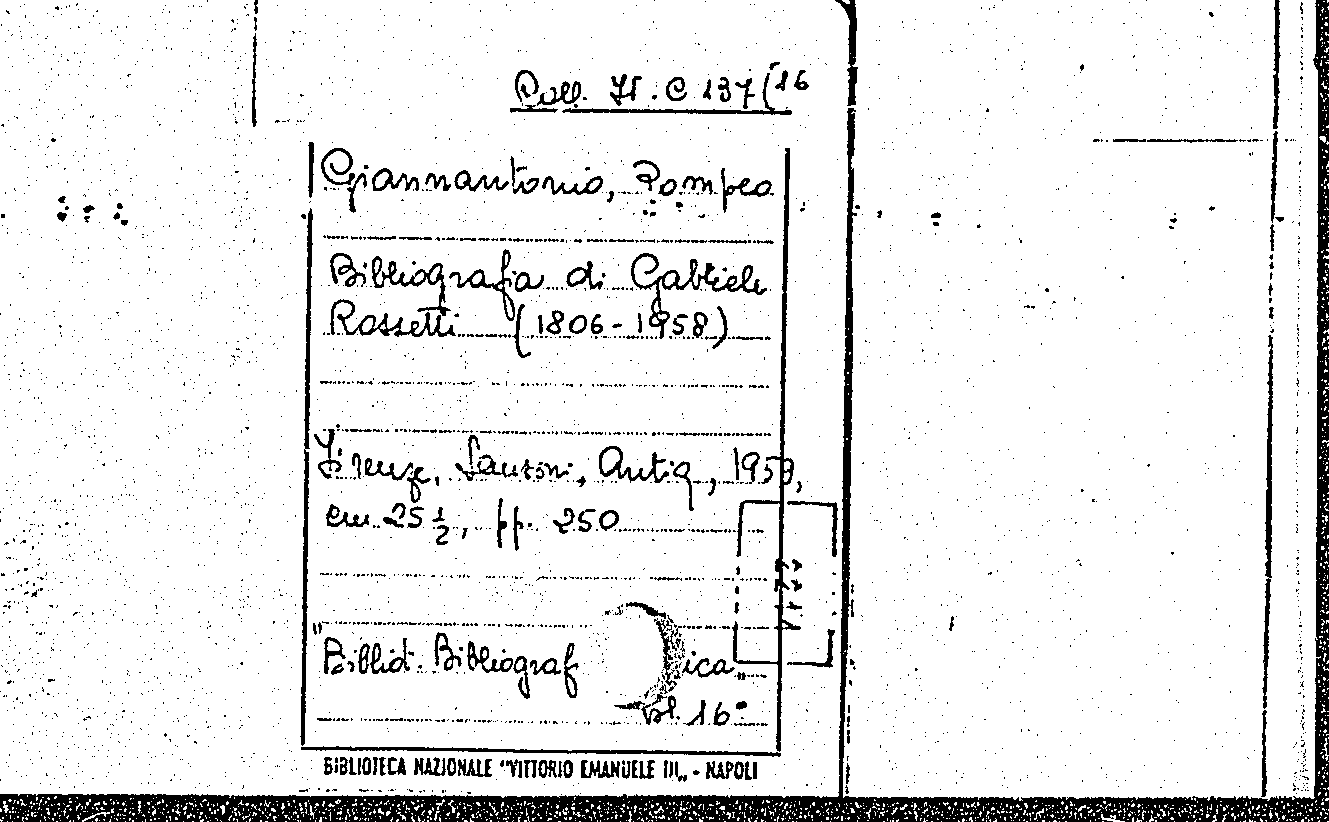 Coll. It. C 137 (16
Giannantonio, Pompeo
Bibliografia di Gabriele
Rossetti (1806-1958)
Firenze, Sansoni, Antiq, 1959,
cm 25 1/2, pp. 250
"Bibliot. Bibliograf ica"
Vol. 16°
BIBLIOTECA NAZIONALE "VITTORIO EMANUELE III„ - NAPOLI